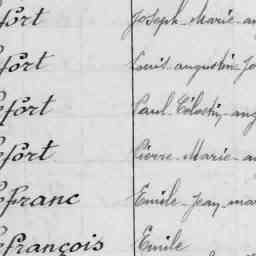 efort Joseph-Marie-au
efort Louis-augustin-Jo
efort Paul-Célestin-aug
efort Pierre-Marie-au
efranc Emile-Jean-mar
efrançois Emile